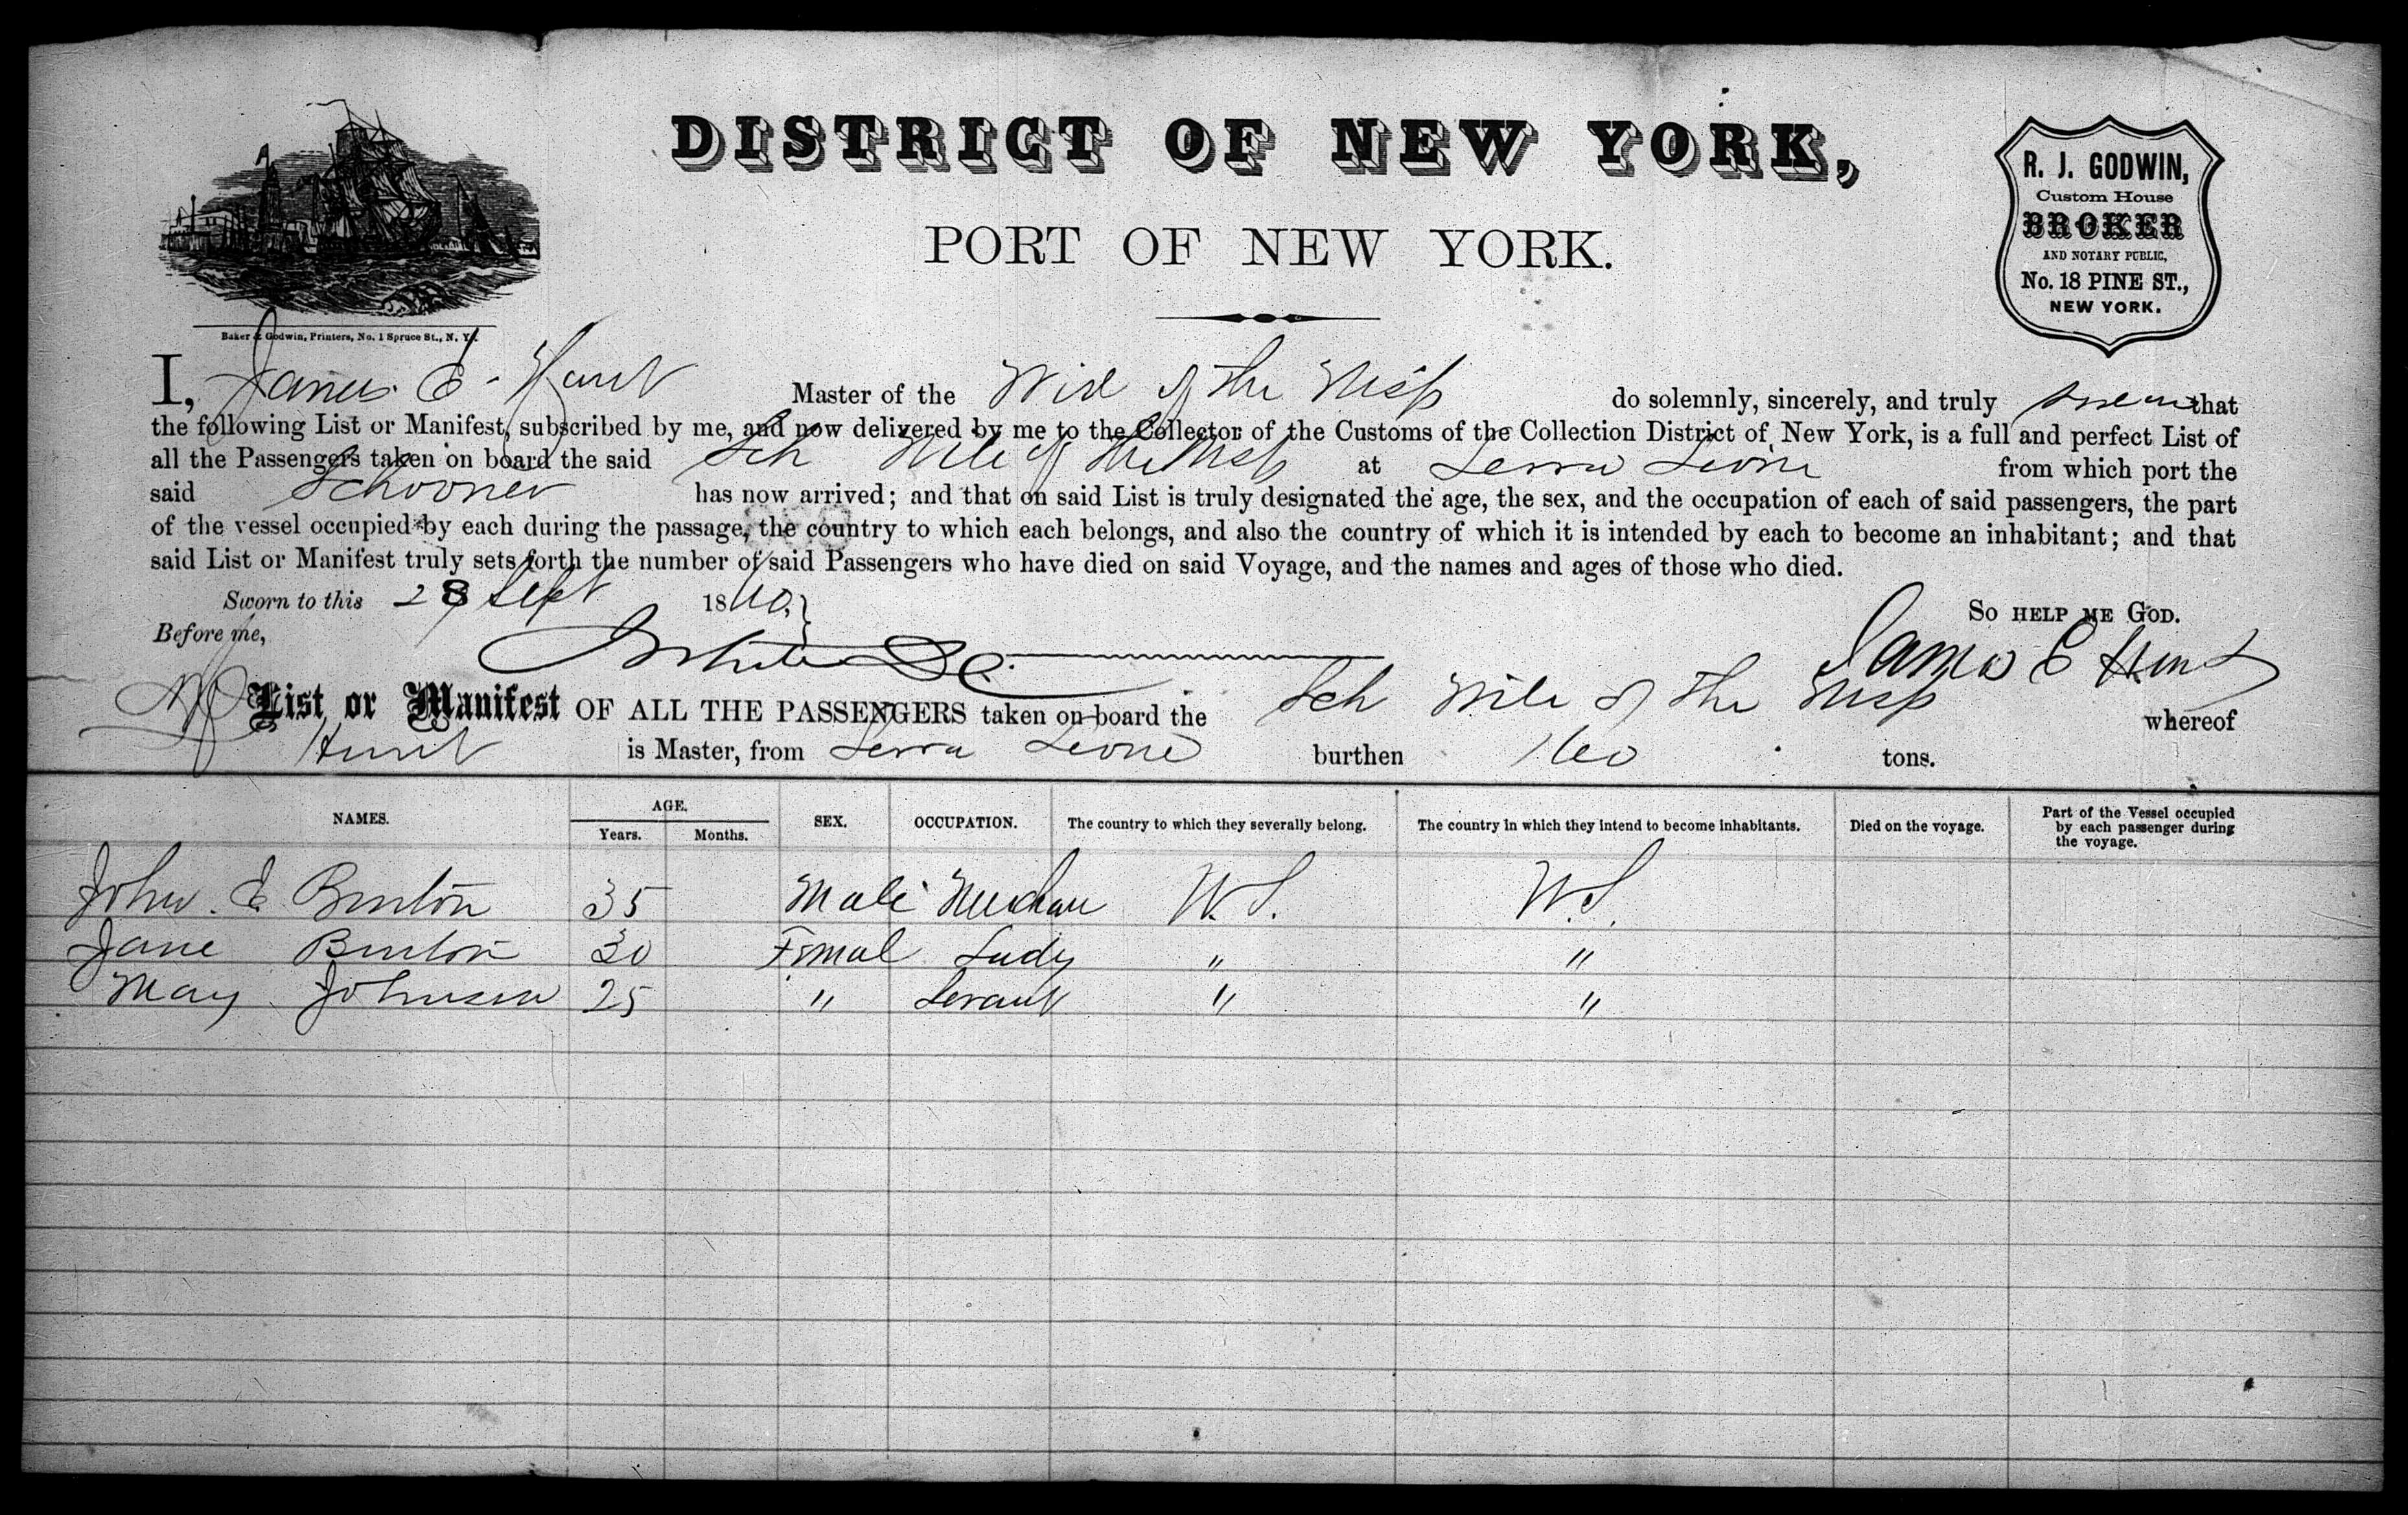 DISTRICT OF NEW YORK,
PORT OF NEW YORK.
R. J. GODWIN,
Custom House
BROKER
AND NOTARY PUBLIC,
No. 18 PINE ST.,
NEW YORK.
Baker & Godwin, Printers, No. 1 Spruce St., N. Y.
I, James E. Hunt Master of the Will of the Wisp do solemnly, sincerely, and truly swear that
the following List or Manifest, subscribed by me, and now delivered by me to the Collector of the Customs of the Collection District of New York, is a full and perfect List of
all the Passengers taken on board the said Sch Will of the Wisp at Serra Leone from which port the
said Schooner has now arrived; and that on said List is truly designated the age, the sex, and the occupation of each of said passengers, the part
of the vessel occupied by each during the passage, the country to which each belongs, and also the country of which it is intended by each to become an inhabitant; and that
said List or Manifest truly sets forth the number of said Passengers who have died on said Voyage, and the names and ages of those who died.
Sworn to this 28 Sept 1860. So help me God.
Before me, James E Hunt
List or Manifest OF ALL THE PASSENGERS taken on board the Sch Will of the Wisp whereof
Hunt is Master, from Serra Leone burthen 160 tons.
NAMES. AGE. Years. Months. SEX. OCCUPATION. The country to which they severally belong. The country in which they intend to become inhabitants. Died on the voyage. Part of the Vessel occupied by each passenger during the voyage.
John E Burton 35 Male U.S. U.S.
Jane Burton 30 Femal Lady " "
Mary Johnson 25 " Servant " "